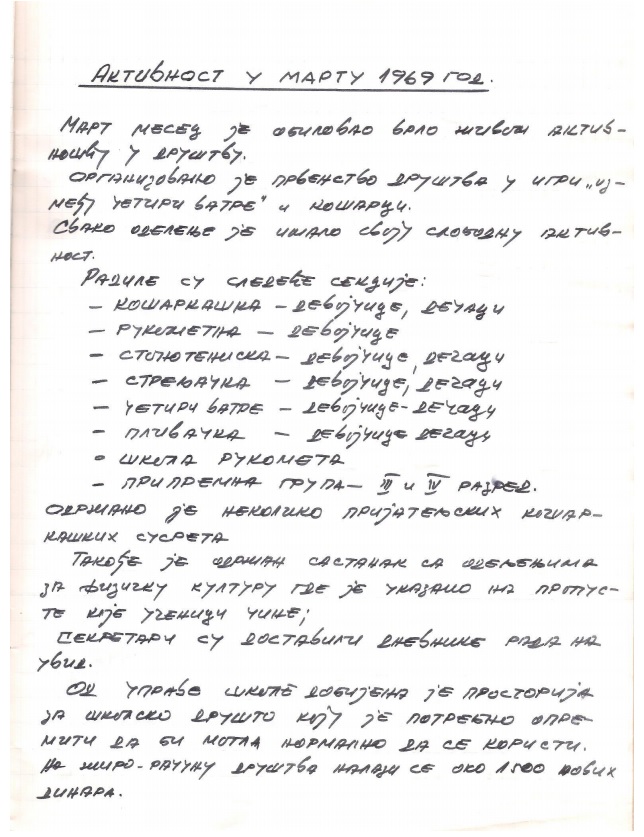 Активност у марту 1969 год.
Март месец је обиловао врло живом актив-
ношћу у друштву.
Организовано је првенство друштва у игри „из-
међу четири ватре" и кошарци.
Свако одељење је имало своју слободну актив-
ност.
Радиле су следеће секције:
– кошаркашка – девојчице, дечаци
– рукометна – девојчице
– стонотениска – девојчице, дечаци
– стрељачка – девојчице, дечаци
– четири ватре – девојчице – дечаци
– пливачка – девојчице дечаци
• школа рукомета
– припремна група – III и IV разред.
Одржано је неколико пријатељских кошар-
кашких сусрета
Такође је одржан састанак са одељењима
за физичку културу где је указано на пропус-
те које ученици чине;
Секретари су доставили дневнике рада на
увид.
Од управе школе добијена је просторија
за школско друшто коју је потребно опре-
мити да би могла нормално да се користи.
На жиро-рачуну друштва налази се око 1500 нових
динара.